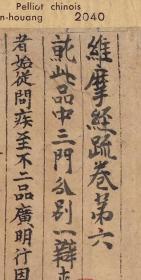 Pelliot chinois
n-houang 2040
維摩經疏卷第六
此品中三門分別一辯
者始從問疾至不二品廣明行因